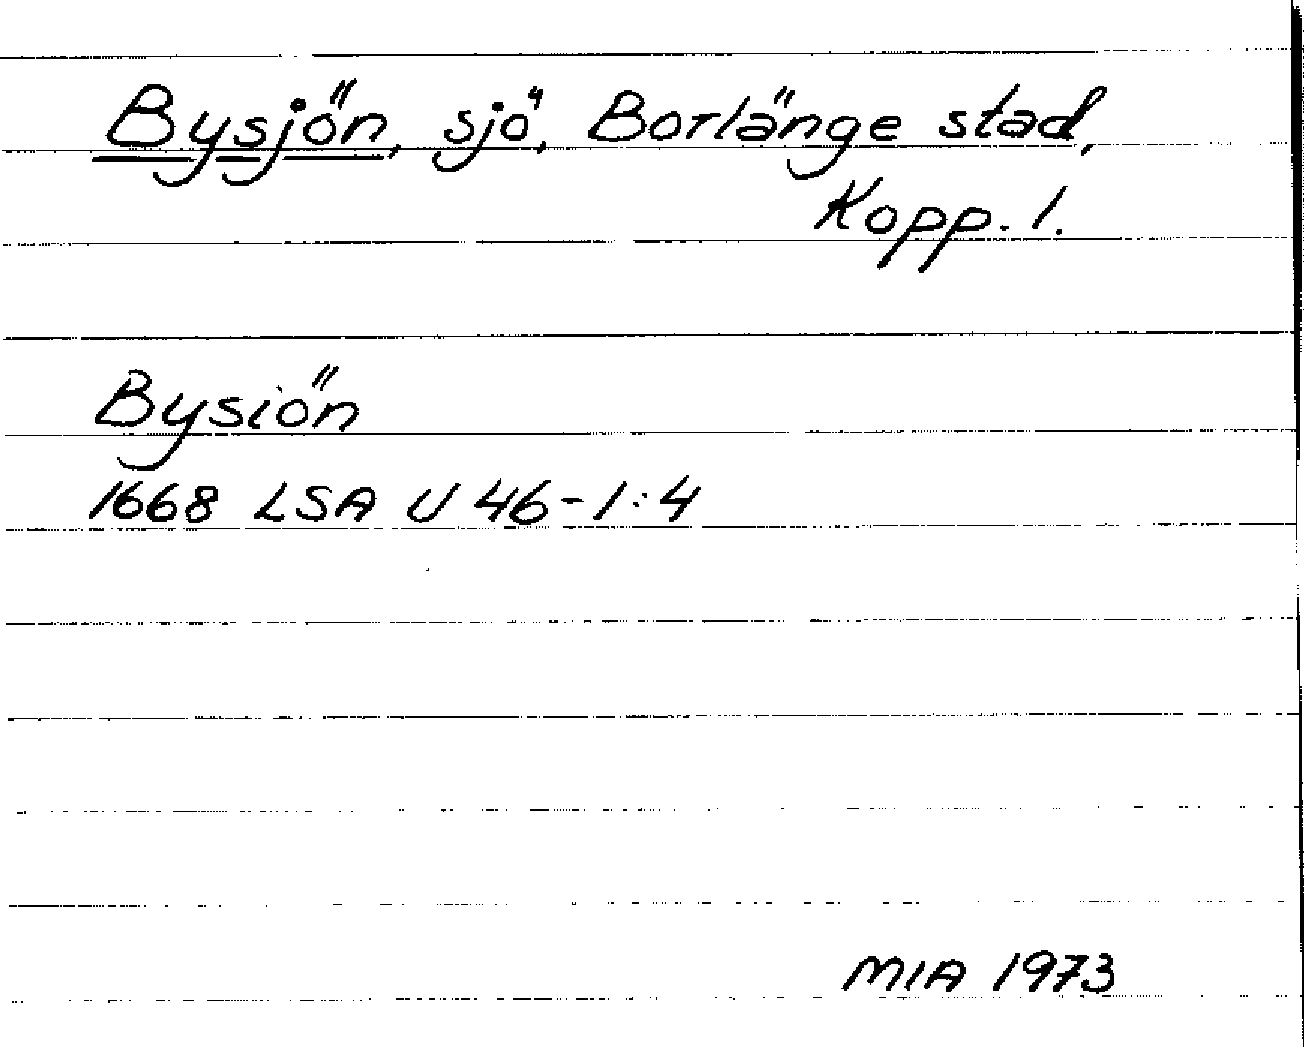 Bysjön, sjö, Borlänge stad,
Kopp. l.
Bysiön
1668 LSA U 46-1:4
MIA 1973